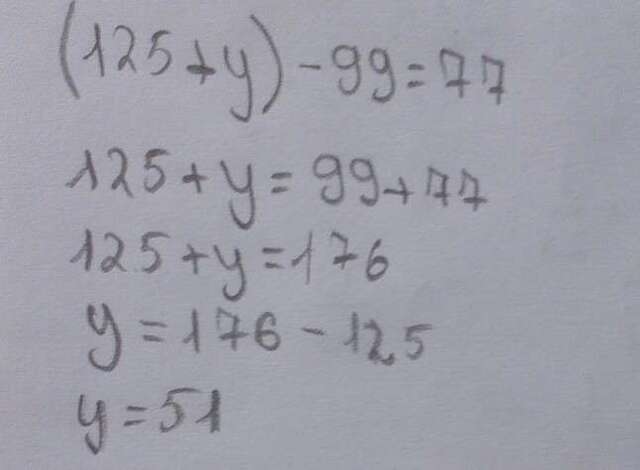 (125+y)-99=77
125+y=99+77
125+y=176
y=176-125
y=51